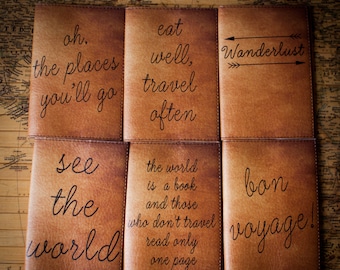 oh.
the places
you'll go
eat
well,
travel
often
Wanderlust
see
the
world
the world
is a book
and those
who don't travel
read only
one page
bon
voyage!